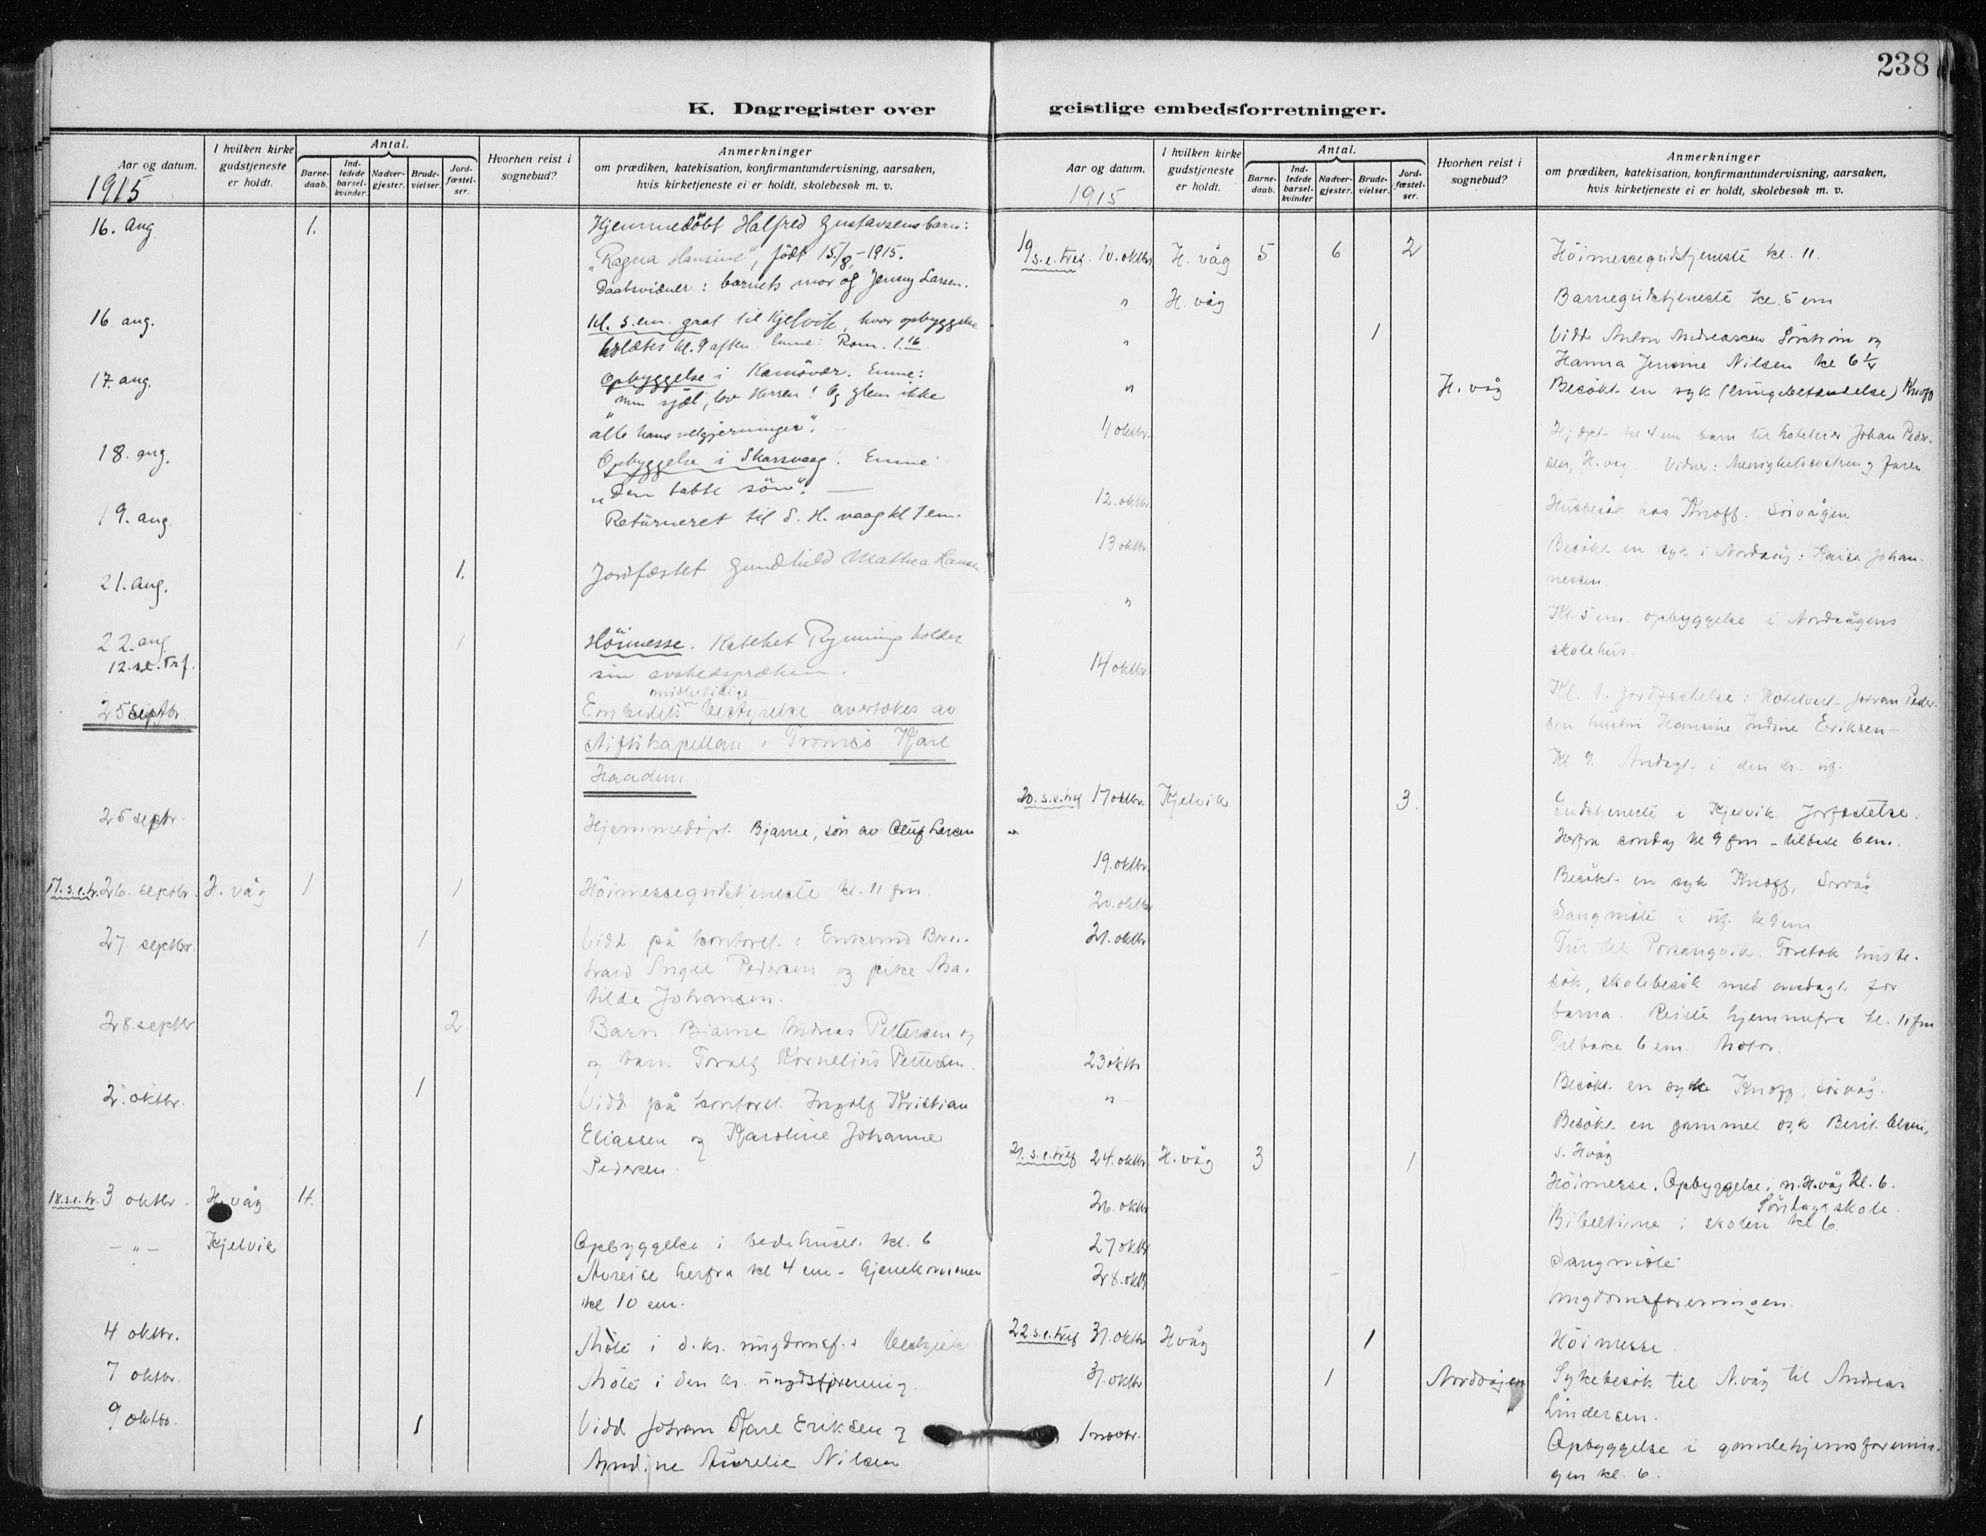 238
K. Dagregister over geistlige embedsforretninger.
Aar og datum.
1915
I hvilken kirke gudstjeneste er holdt.
Antal.
Barnedaab.
Indledede barselkvinder
Nadvergjester.
Brudevielser.
Jordfæstelser.
Hvorhen reist i sognebud?
Anmerkninger
om prædiken, katekisation, konfirmantundervisning, aarsaken,
hvis kirketjeneste ei er holdt, skolebesøk m. v.
16. aug 1. Hjemmedöbt Halfred Gustavsens barn:
"Ragna Hansine", født 15/8-1915.
Daabsvidner: barnets mor og Jenny Larsen.
16 aug. Kl. 5 em. gaat til Kjelvik, hvor opbyggelse
holdtes kl. 9 aften. Emne: Rom. 1.16
17. aug. Opbyggelse i Kamøvær. Emne:
"min sjæl, lov Herren! Og glem ikke
alle hans velgjerninger".
18. aug. Opbyggelse i Skarsvaag. Emne
"Den tabte søn".
19. aug. Returneret til S. H. vaag kl 7 em.
21. aug. 1. Jordfæstet Gundhild Mathea Hansen
22. aug 1 Höimesse. Kateket Ryning holder
12. s.e. Trf. sin avskedspræken.
midlertidige
25 septbr Embedets bestyrelse overtokes av
stiftskapellan i Tromsö Kjarl
Haadem.
25 septbr. Hjemmedøpt. Bjarne, søn av Oluf Larsen
17. s.e.tr. 26. septbr. H. våg 1 1 Höimessegudstjeneste kl. 11 fm.
27. septbr. 1 Vidd på kontoret: Enkemd Bern-
hard Ingel Pedersen og pike Ma-
tilde Johansen.
28. septbr 2 Barn Bjarne Andreas Pettersen og
og barn Toralf Kornelius Pettersen.
2. oktbr. 1 Vidd på kontoret Ingolf Kristian
Eliassen og Karoline Johanne
Pedersen.
18. s.e. tr. 3 oktbr. H. våg 4.
- " - Kjelvik Opbyggelse i bedehuset kl. 6
Avreise herfra kl 4 em - hjemkommen
kl 10 em.
4 oktbr. Møte i d. kr. ungdomsf.
7 oktbr. Møte i den kr. ungdsforening.
9 oktbr. 1 Vidd Johan Karl Eriksen og
Andine Aurelie Nilsen
Aar og datum.
1915
I hvilken kirke gudstjeneste er holdt.
Antal.
Barnedaab.
Indledede barselkvinder
Nadvergjester.
Brudevielser.
Jordfæstelser.
Hvorhen reist i sognebud?
Anmerkninger
om prædiken, katekisation, konfirmantundervisning, aarsaken,
hvis kirketjeneste ei er holdt, skolebesøk m. v.
19 s.e.tref. 10. oktbr. H. våg 5 6 2 Höimessegudstjeneste kl. 11.
" H. våg Barnegudstjeneste kl. 5 em
" 1 Vidd Anton Andreassen Sörström og
Hanna Jensine Nilsen kl 6 1/4
" H. våg Besøkt en syk (lungebetændelse) Knoff
11 oktbr. Hjdøpt kl 4 em barn til hoteleier Johan Peder-
sen, H. våg. Vidner: Menighetssøstren og faren
12. oktbr. Husbesøk hos Knoff. Sörvågen
13 oktbr. Besøkt en syk i Nordvåg: Johan-
nessen.
" Kl. 5 em. opbyggelse i Nordvågens
skolehus.
14 oktbr. Kl. 1. jordfæstelse: Hotelvert Johan Peder-
sen hustru Hansine Indine Eriksen
Kl 9. Andagt i den kr. uf.
20. s.e.tref 17 oktbr. Kjelvik 3. Gudstjeneste i Kjelvik. Jorfæstelse.
" Herfra söndag kl 9 fm - tilbake 6 em.
19. oktbr. Besøkt en syk Knoff, Sörvåg
20. oktbr Sangmøte i uf. kl 9 em
21. oktbr Tur til Porsangvik. Foretok husbe-
søk, skolebesøk med andagt for
barna. Reiste hjemmefra kl. 11 fm
Tilbake 6 em. Motor.
23 oktbr Besøkt en syk Knoff, sörvåg.
" Besøkt en gammel syk Berit Olsen,
s. Hvåg
21. s.e.tref 24. oktbr. H. våg 3 1 Höimesse. Opbyggelse, n. H. våg kl. 6.
Söndagsskole.
26. oktbr Bibeltime i skolen kl 6
27 oktbr Sangmøte
28. oktbr Ungdomsforeningen.
22 s.e.tref 31. oktbr Hvåg 1 Höimesse.
31. oktbr 1 Nordvågen Sykebesøk til N. våg til Andreas
Lindersen.
1 novbr. Opbyggelse i gamlehjemsforenin-
gen kl. 6.